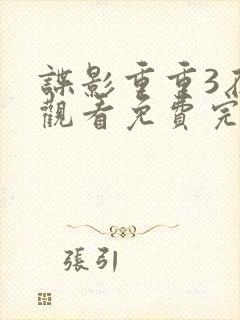 諜影重重3
觀看免費完
張引